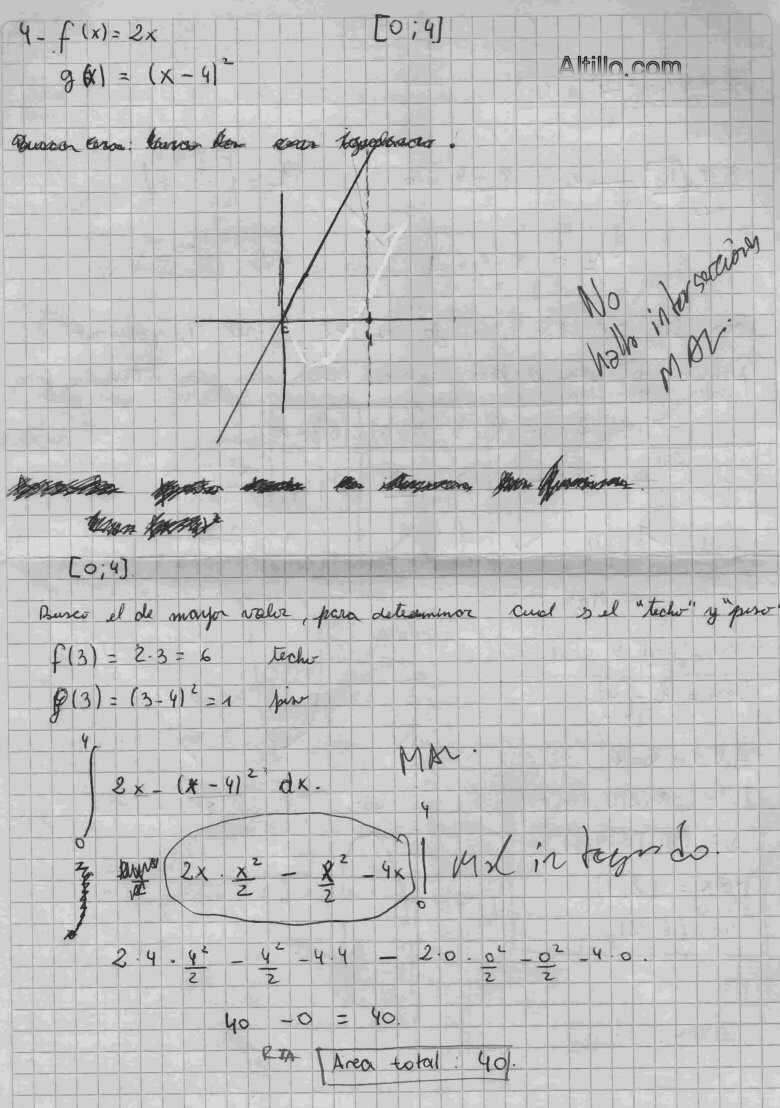 4- f(x) = 2x [0;4]
g(x) = (x-4)²
Altillo.com
Buscar
4
No
hallo intersecciones
MAL.
[0;4]
Busco el de mayor valor, para determinar cual es el "techo" y "piso"
f(3) = 2·3 = 6 techo
g(3) = (3-4)² = 1 piso
4
∫ 2x - (x-4)² dx. MAL.
0
2x · x²/2 - x²/2 - 4x |₀⁴ Mal integrado.
2·4 · 4²/2 - 4²/2 - 4·4 - 2·0 · 0²/2 - 0²/2 - 4·0.
40 - 0 = 40.
RTA Area total: 40.